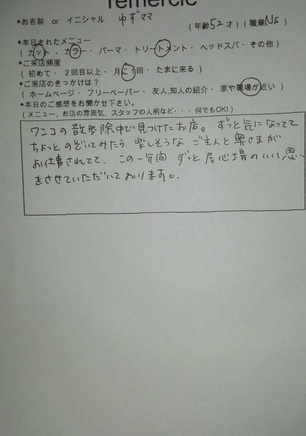 remercic
*お名前 or イニシャル ゆずママ (年齢52才) (職業Ns)
*本日されたメニュー
(カット・カラー・パーマ・トリートメント・ヘッドスパ・その他)
*ご来店頻度
(初めて・2回目以上・月に1回・たまに来る)
*ご来店のきっかけは?
(ホームページ・フリーペーパー・友人,知人の紹介・家や職場が近い)
*本日のご感想をお聞かせ下さい。
(メニュー、お店の雰囲気、スタッフの人柄など・・・何でもOK!)
ワンコの散歩途中で見つけたお店。ずっと気になってて
ちょっとのぞいてみたら 楽しそうな ご主人と奥さまが
お仕事されてて、この一年間 ずっと居心地のいい思い
をさせていただいております。